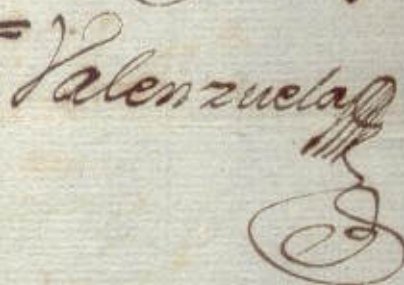 =
Valenzuela